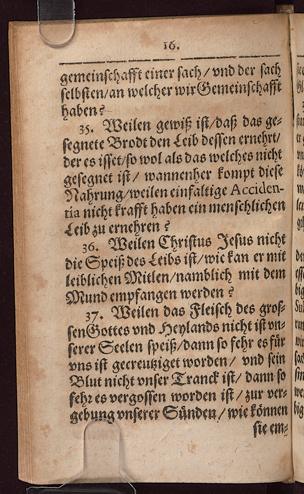 16.
gemeinschafft einer sach / vnd der sach
selbsten / an welcher wir Gemeinschafft
haben?
35. Weilen gewiß ist / daß das ge-
segnete Brodt den Leib dessen ernehrt /
der es isset / so wol als das welches nicht
gesegnet ist / wannenher kompt diese
Nahrung / weilen einfältige Acciden-
tia nicht krafft haben ein menschlichen
Leib zu ernehren?
36. Weilen Christus Jesus nicht
die Speiß des Leibs ist / wie kan er mit
leiblichen Mitlen / namblich mit dem
Mund empfangen werden?
37. Weilen das Fleisch des gros-
sen Gottes vnd Heylands nicht ist vn-
serer Seelen speiß / dann so fehr es für
vns ist gecreutziget worden / vnd sein
Blut nicht vnser Tranck ist / dann so
fehr es vergossen worden ist / zur ver-
gebung vnserer Sünden / wie können
sie em-